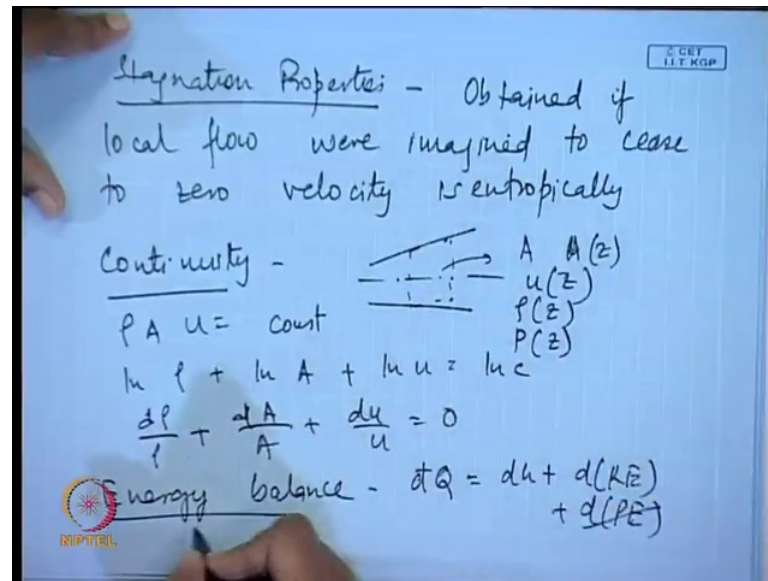 © CET
I.I.T. KGP
Stagnation Properties - Obtained if
local flow were imagined to cease
to zero velocity isentropically
Continuity -
A A(z)
u(z)
ρ(z)
P(z)
ρ A u = const
ln ρ + ln A + ln u = ln c
dρ/ρ + dA/A + du/u = 0
Energy balance - đQ = dh + d(KE)
+ d(PE)
NPTEL